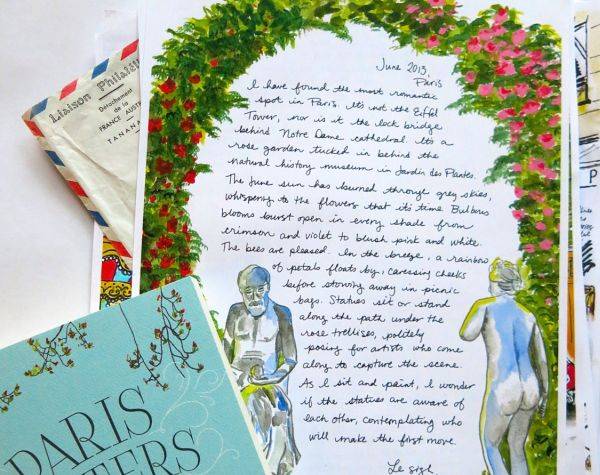 Liaison Philatéli
Détachement
de la
FRANCE AUSTR
TANANA
June 2013,
Paris
I have found the most romantic
spot in Paris. It's not the Eiffel
Tower, nor is it the lock bridge
behind Notre Dame cathedral. It's a
rose garden tucked in behind the
natural history museum in Jardin des Plantes.
The June sun has burned through grey skies,
whispering to the flowers that it's time. Bulbous
blooms burst open in every shade from
crimson and violet to blush pink and white.
The bees are pleased. In the breeze, a rainbow
of petals floats by, caressing cheeks
before stowing away in picnic
bags. Statues sit or stand
along the path under the
rose trellises, politely
posing for artists who come
along to capture the scene.
As I sit and paint, I wonder
if the statues are aware of
each other, contemplating who
will make the first move.
Le sigh
PARIS
TERS